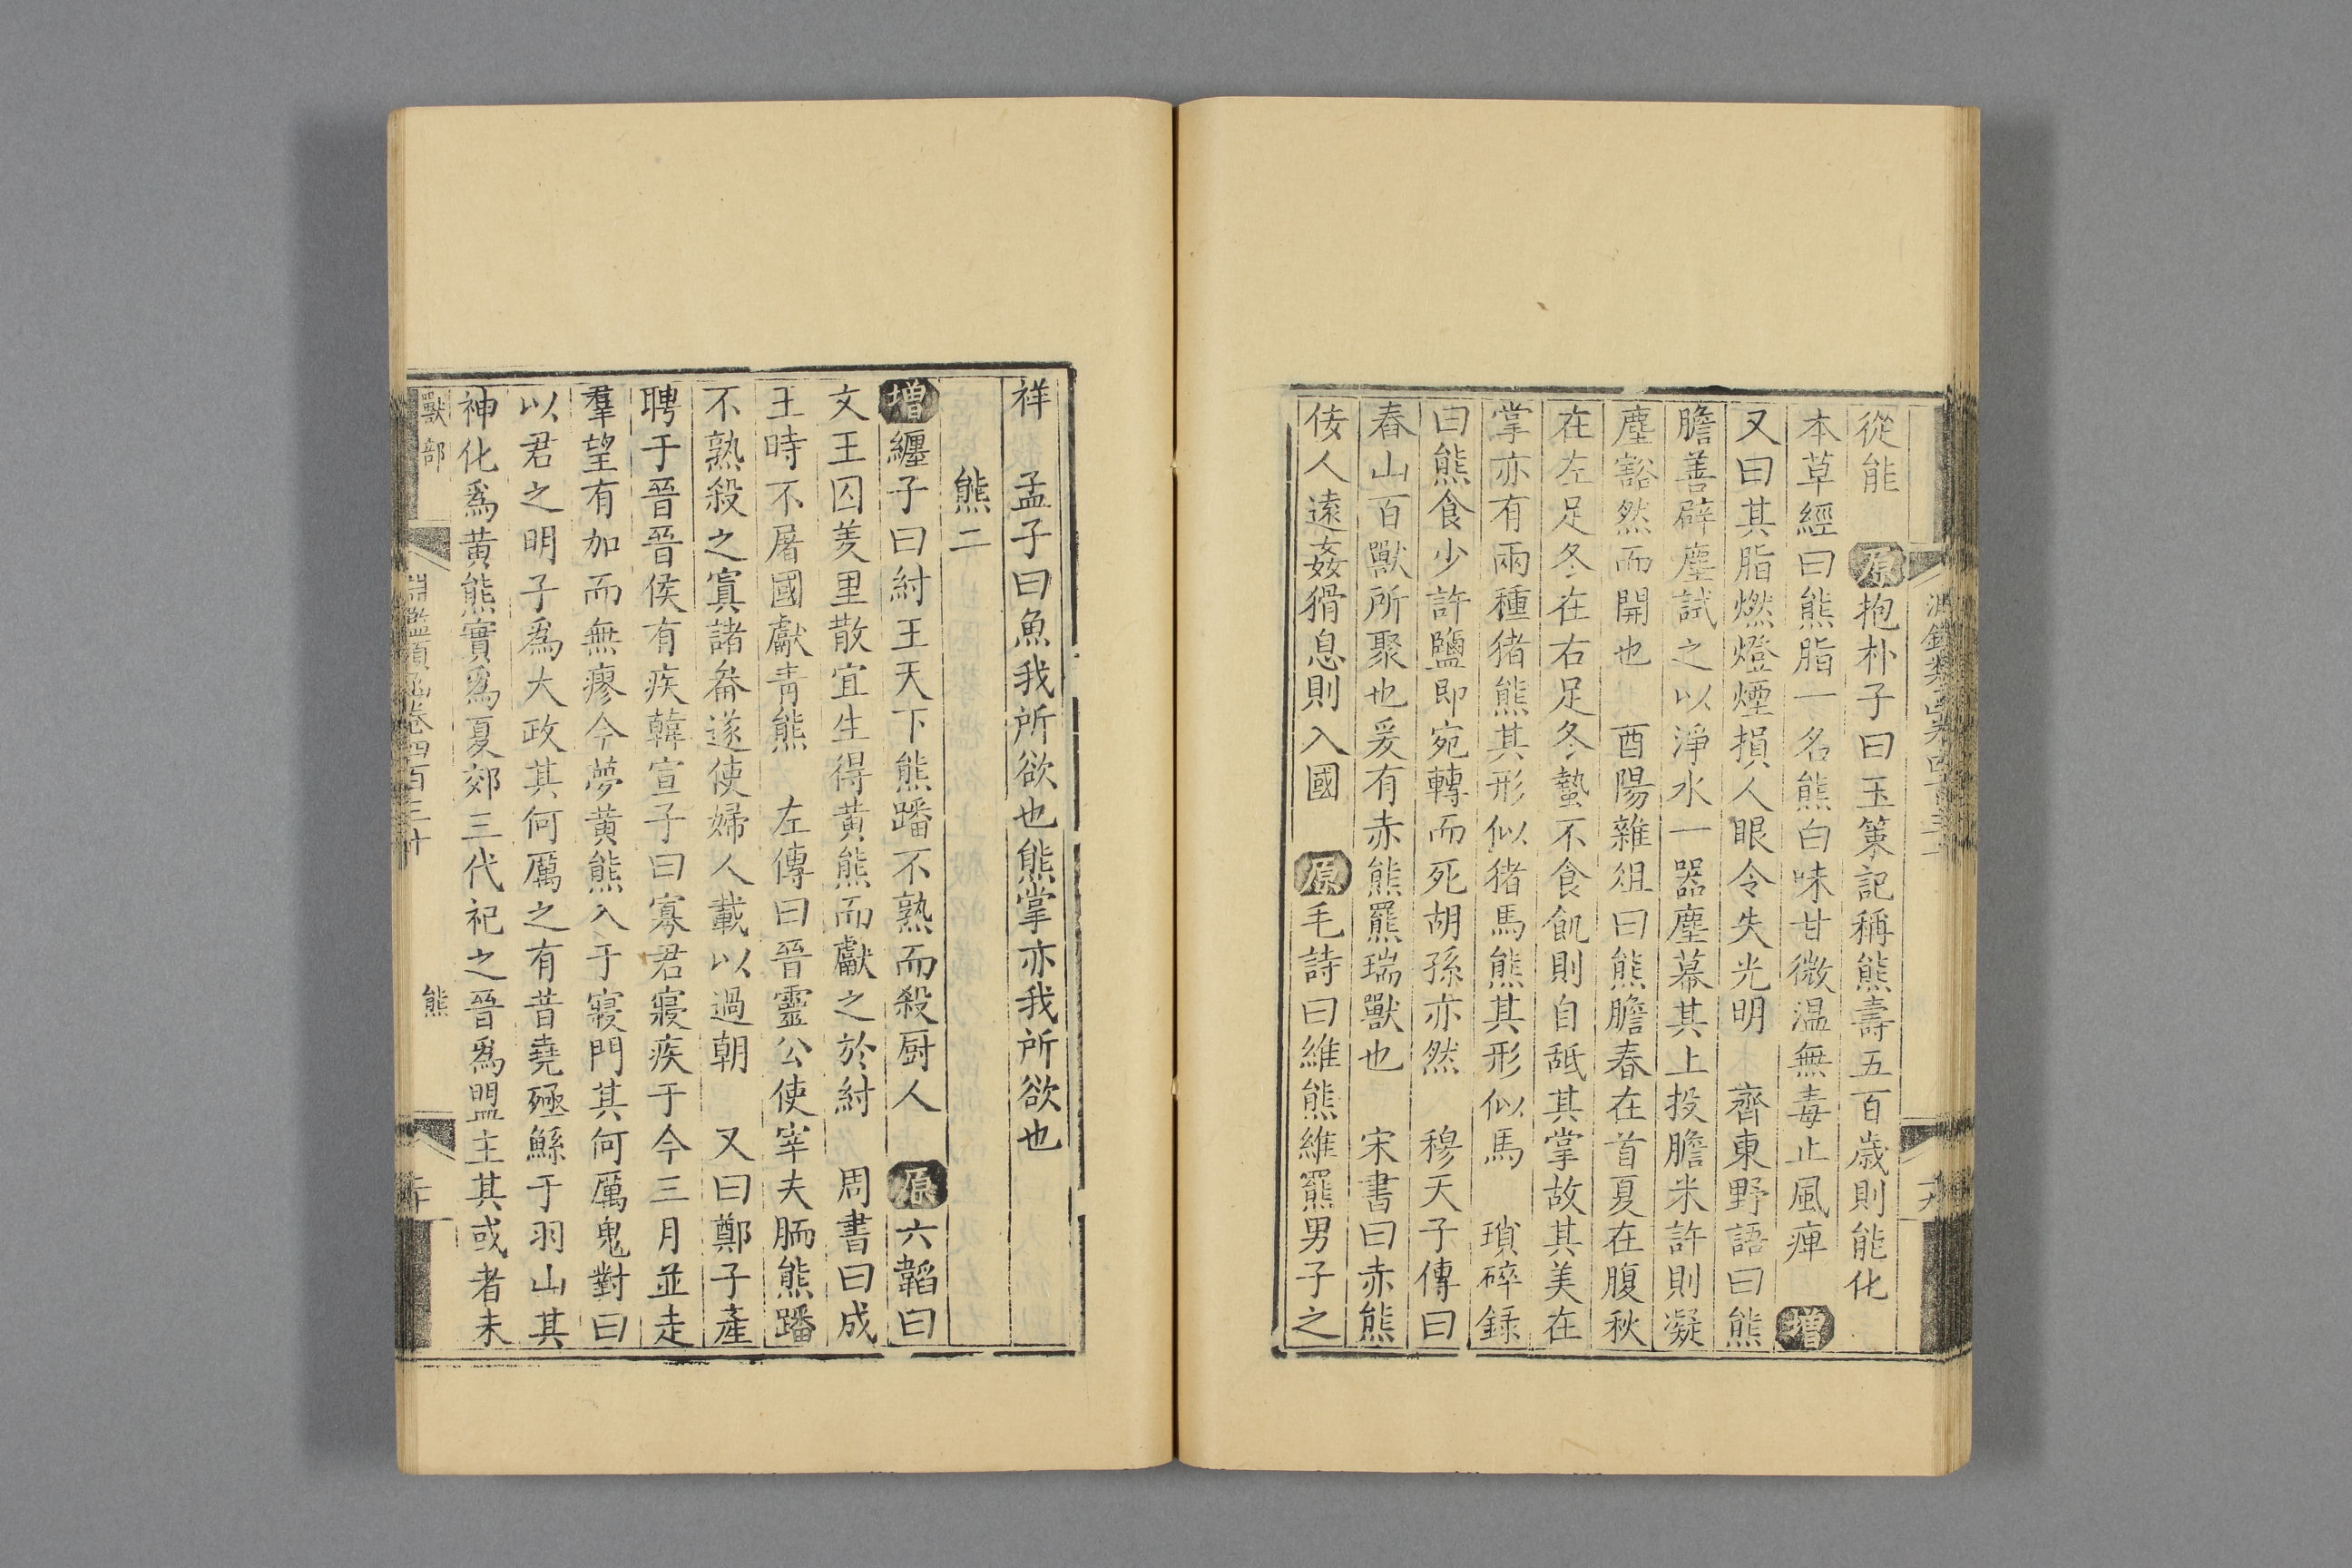 從能　原抱朴子曰玉策記稱熊壽五百歲則能化
本草經曰熊脂一名熊白味甘微温無毒止風痺　增
又曰其脂燃燈煙損人眼令失光明　齊東野語曰熊
膽善辟塵試之以淨水一器塵幕其上投膽米許則凝
塵豁然而開也　酉陽雜俎曰熊膽春在首夏在腹秋
在左足冬在右足冬蟄不食飢則自舐其掌故其美在
掌亦有兩種猪熊其形似猪馬熊其形似馬　瑣碎録
曰熊食少許鹽即宛轉而死胡孫亦然　穆天子傳曰
舂山百獸所聚也爰有赤熊羆瑞獸也　宋書曰赤熊
佞人遠姦猾息則入國　原毛詩曰維熊維羆男子之
祥　孟子曰魚我所欲也熊掌亦我所欲也
熊二
增纏子曰紂王天下熊蹯不熟而殺厨人　原六韜曰
文王囚羑里散宜生得黄熊而獻之於紂　周書曰成
王時不屠國獻青熊　左傳曰晉靈公使宰夫胹熊蹯
不熟殺之寘諸畚遂使婦人載以過朝　又曰鄭子產
聘于晉晉侯有疾韓宣子曰寡君寢疾于今三月並走
羣望有加而無瘳今夢黄熊入于寢門其何厲鬼對曰
以君之明子爲大政其何厲之有昔堯殛鯀于羽山其
神化爲黄熊實爲夏郊三代祀之晉爲盟主其或者未
獸部　淵鑑類函卷四百三十　熊